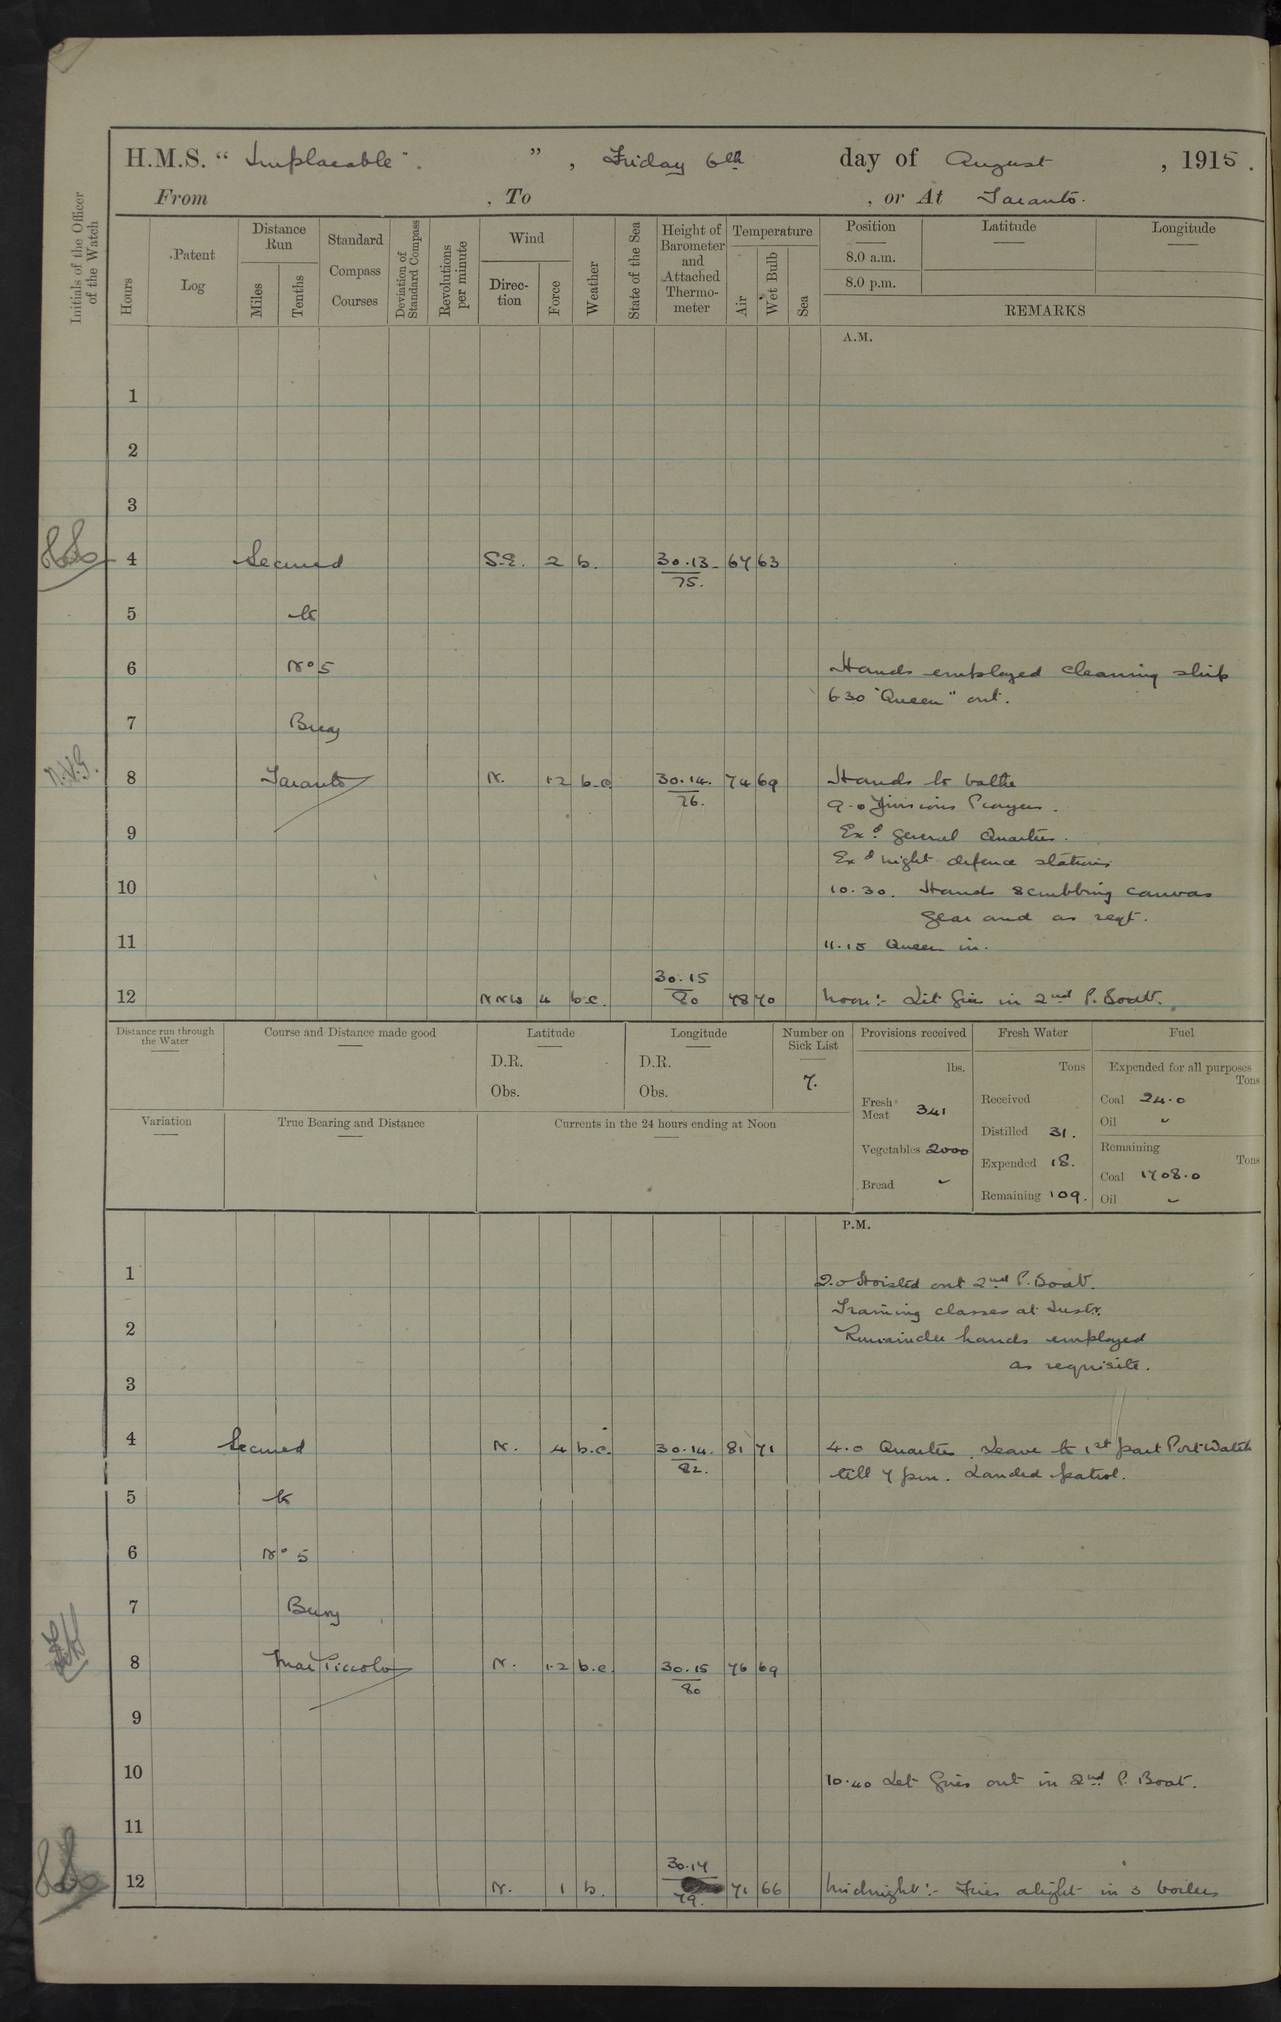 H.M.S. "Implacable". ", Friday 6th day of August, 1915.
From , To , or At Taranto.
Initials of the Officer of the Watch
Hours
Patent Log
Distance Run
Miles
Tenths
Standard Compass Courses
Deviation of Standard Compass
Revolutions per minute
Wind
Direction
Force
Weather
State of the Sea
Height of Barometer and Attached Thermometer
Temperature
Air
Wet Bulb
Sea
Position
Latitude
Longitude
8.0 a.m.
8.0 p.m.
REMARKS
A.M.
1
2
3
4 Secured S.E. 2 b. 30.13 67 63
75.
5 to
6 No 5 Hands employed cleaning ship
6 30 "Queen" out.
7 Buoy
N.V.G.
8 Taranto N. 1.2 b.c. 30.14. 74 69 Hands to bathe
76.
9.0 Divisions Prayers.
9 Exd. General Quarters.
Exd night defence stations
10 10.30. Hands scrubbing canvas
gear and as reqt.
11 11.15 Queen in.
30.15
12 NNW 4 b.c. 80 78 70 Noon:- Lit fires in 2nd P. Boat.
Distance run through the Water
Course and Distance made good
Latitude
D.R.
Obs.
Longitude
D.R.
Obs.
Number on Sick List
7.
Provisions received
lbs.
Fresh Meat 341
Vegetables 2000
Bread "
Fresh Water
Tons
Received
Distilled 31.
Expended 18.
Remaining 109.
Fuel
Expended for all purposes
Tons
Coal 24.0
Oil "
Remaining
Tons
Coal 1708.0
Oil "
Variation
True Bearing and Distance
Currents in the 24 hours ending at Noon
P.M.
1 2.0 Hoisted out 2nd P. Boat.
Training classes at Instr.
2 Remainder hands employed
as requisite.
3
4 Secured N. 4 b.c. 30.14. 81 71 4.0 Quarters. Leave to 1st part Port Watch
82.
till 7 pm. Landed patrol.
5 to
6 No 5
7 Buoy
8 Mar Piccolo N. 1.2 b.c. 30.15 76 69
80
9
10 10.40 Let fires out in 2nd P. Boat.
11
30.14
12 N. 1 b. 79. 71 66 Midnight:- Fires alight in 3 boilers